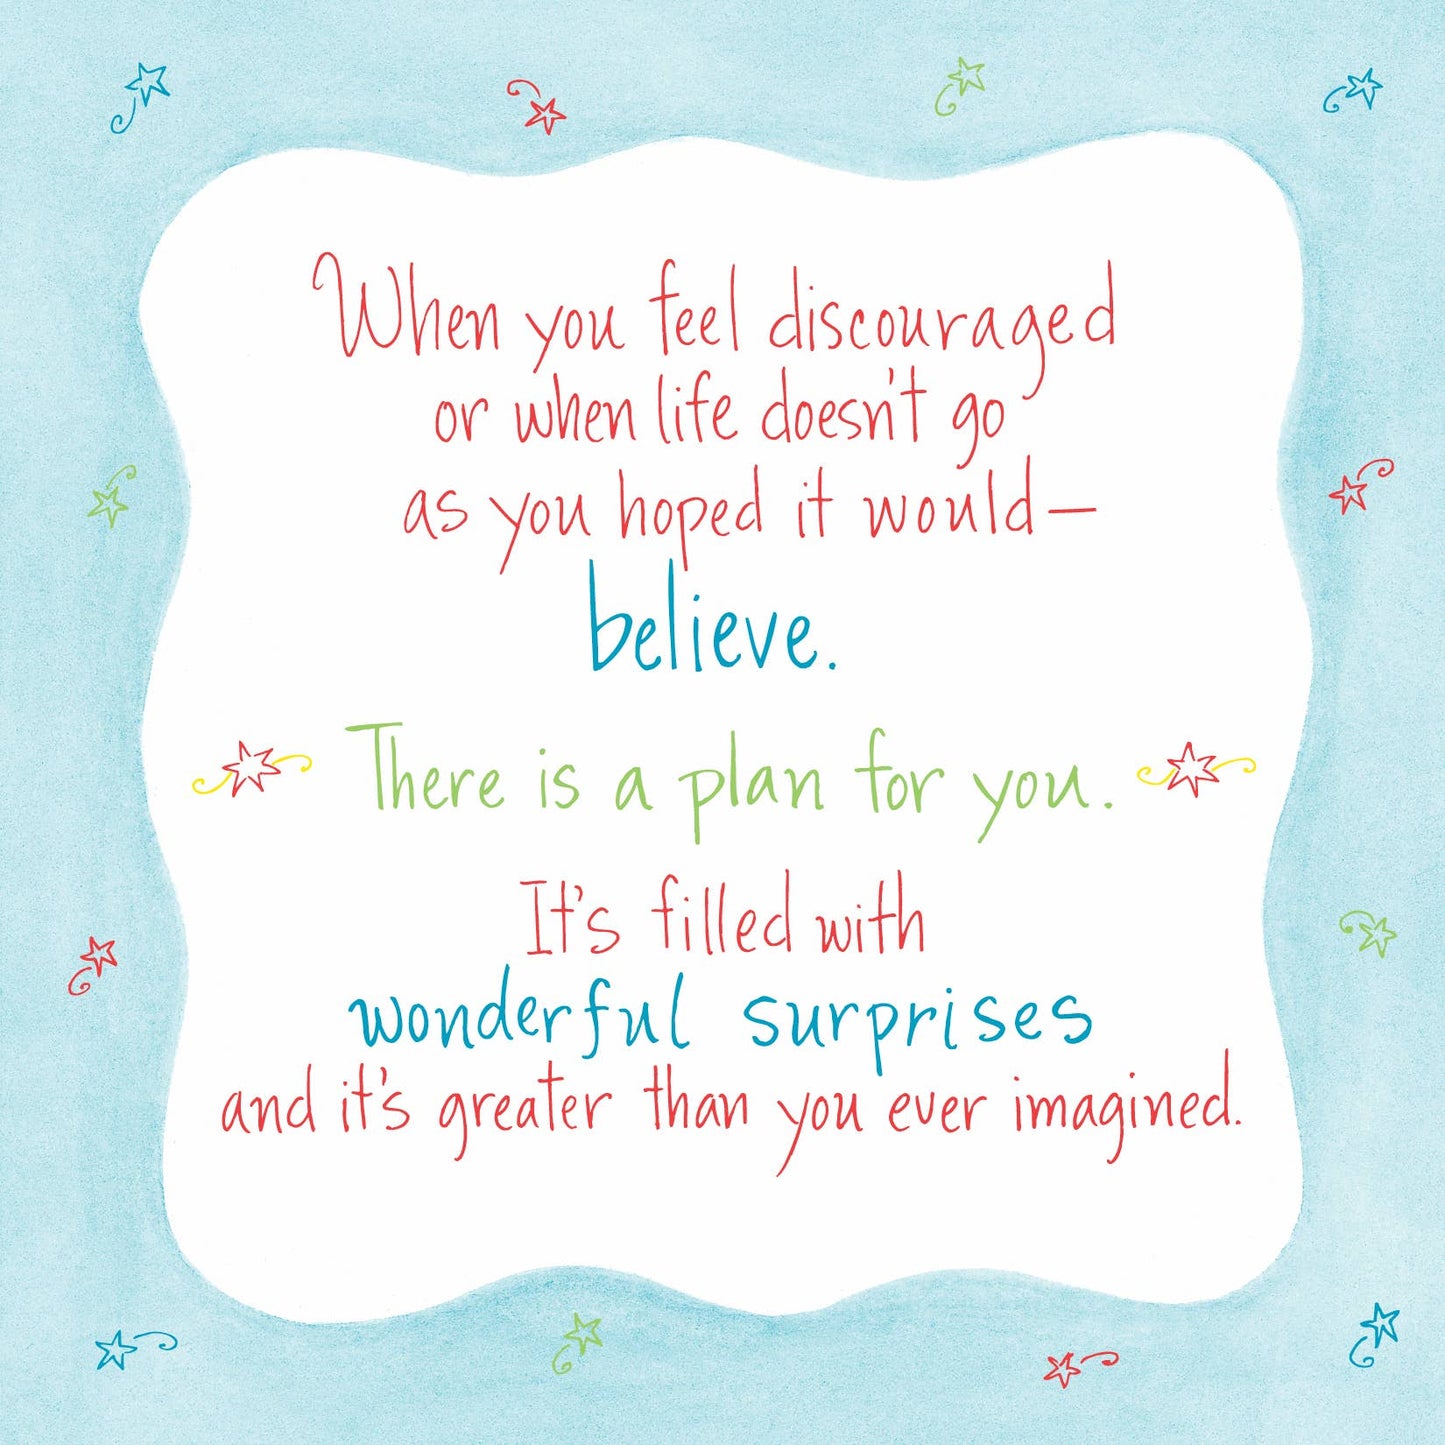 When you feel discouraged
or when life doesn't go
as you hoped it would—
believe.
There is a plan for you.
It's filled with
wonderful surprises
and it's greater than you ever imagined.